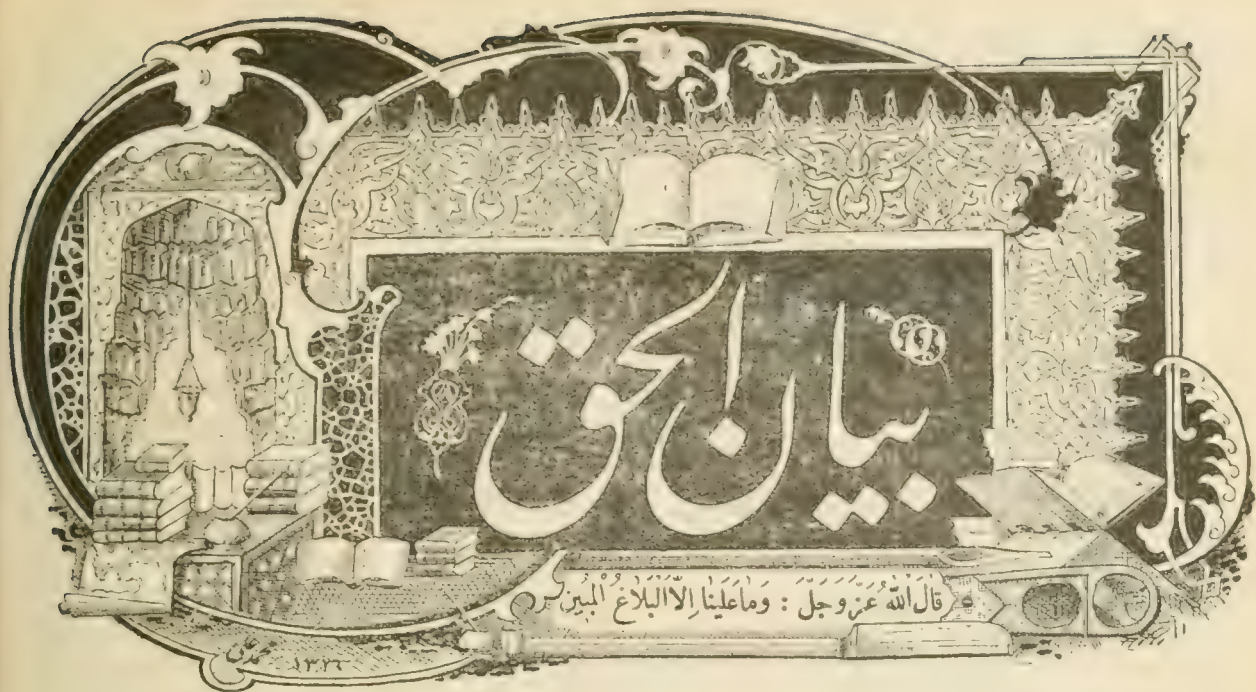 بيان الحق
قَالَ اللهُ عَزَّ وَجَلَّ : وَمَا عَلَيْنَا اِلاَّ الْبَلَاغُ الْمُبِينُ
١٣٢٦